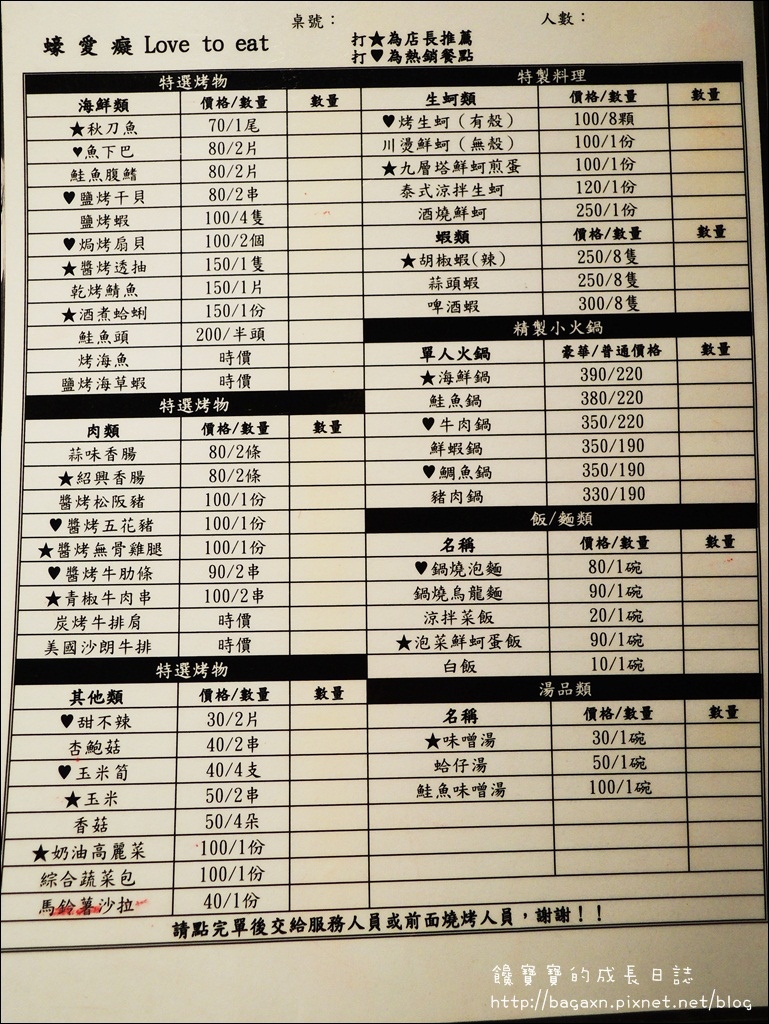 桌號： 人數：
蠔愛癡 Love to eat
打★為店長推薦
打♥為熱銷餐點
特選烤物
海鮮類 價格/數量 數量
★秋刀魚 70/1尾
♥魚下巴 80/2片
鮭魚腹鰭 80/2片
♥鹽烤干貝 80/2串
鹽烤蝦 100/4隻
♥焗烤扇貝 100/2個
★醬烤透抽 150/1隻
乾烤鯖魚 150/1片
★酒煮蛤蜊 150/1份
鮭魚頭 200/半頭
烤海魚 時價
鹽烤海草蝦 時價
特選烤物
肉類 價格/數量 數量
蒜味香腸 80/2條
★紹興香腸 80/2條
醬烤松阪豬 100/1份
♥醬烤五花豬 100/1份
★醬烤無骨雞腿 100/1份
♥醬烤牛肋條 90/2串
★青椒牛肉串 100/2串
炭烤牛排肩 時價
美國沙朗牛排 時價
特選烤物
其他類 價格/數量 數量
♥甜不辣 30/2片
杏鮑菇 40/2串
♥玉米筍 40/4支
★玉米 50/2串
香菇 50/4朵
★奶油高麗菜 100/1份
綜合蔬菜包 100/1份
馬鈴薯沙拉 40/1份
特製料理
生蚵類 價格/數量 數量
♥烤生蚵（有殼） 100/8顆
川燙鮮蚵（無殼） 100/1份
★九層塔鮮蚵煎蛋 100/1份
泰式涼拌生蚵 120/1份
酒燒鮮蚵 250/1份
蝦類 價格/數量 數量
★胡椒蝦(辣) 250/8隻
蒜頭蝦 250/8隻
啤酒蝦 300/8隻
精製小火鍋
單人火鍋 豪華/普通價格 數量
★海鮮鍋 390/220
鮭魚鍋 380/220
♥牛肉鍋 350/220
鮮蝦鍋 350/190
♥鯛魚鍋 350/190
豬肉鍋 330/190
飯/麵類
名稱 價格/數量 數量
♥鍋燒泡麵 80/1碗
鍋燒烏龍麵 90/1碗
涼拌菜飯 20/1碗
★泡菜鮮蚵蛋飯 90/1碗
白飯 10/1碗
湯品類
名稱 價格/數量 數量
★味噌湯 30/1碗
蛤仔湯 50/1碗
鮭魚味噌湯 100/1碗
請點完單後交給服務人員或前面燒烤人員，謝謝！！
饞寶寶的成長日誌
http://bagaxn.pixnet.net/blog